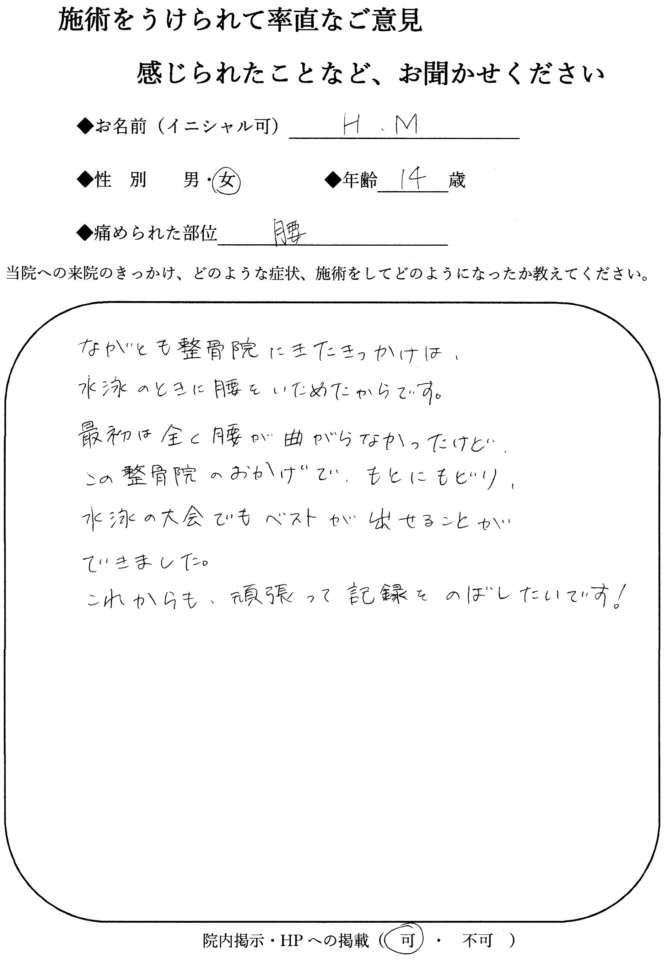 施術をうけられて率直なご意見
感じられたことなど、お聞かせください
◆お名前（イニシャル可） H.M
◆性　別　　男・女　　◆年齢 14 歳
◆痛められた部位 腰
当院への来院のきっかけ、どのような症状、施術をしてどのようになったか教えてください。
ながとも整骨院にきたきっかけは、
水泳のときに腰をいためたからです。
最初は全く腰が曲がらなかったけど、
この整骨院のおかげで、もとにもどり、
水泳の大会でもベストが出せることが
できました。
これからも、頑張って記録をのばしたいです!
院内掲示・HPへの掲載（ 可 ・ 不可 ）